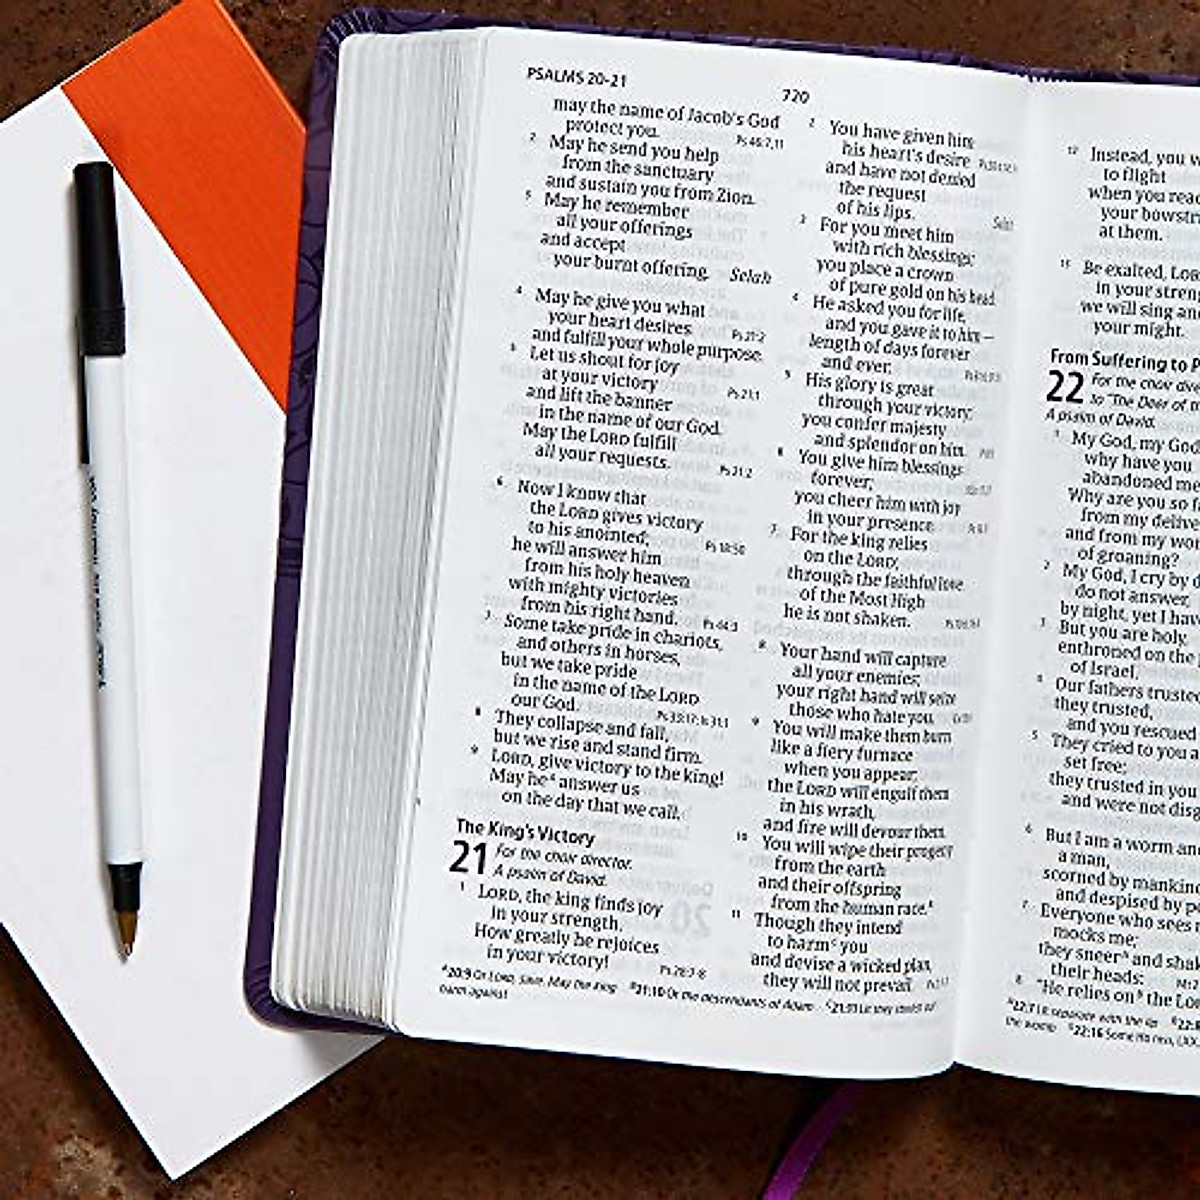 PSALMS 20–21
720
may the name of Jacob's God
protect you. Ps 46:7,11
2 May he send you help
from the sanctuary
and sustain you from Zion.
3 May he remember
all your offerings
and accept
your burnt offering. Selah
4 May he give you what
your heart desires Ps 21:2
and fulfill your whole purpose.
5 Let us shout for joy
at your victory Ps 21:1
and lift the banner
in the name of our God.
May the LORD fulfill
all your requests. Ps 21:2
6 Now I know that
the LORD gives victory
to his anointed; Ps 18:50
he will answer him
from his holy heaven
with mighty victories
from his right hand. Ps 44:3
7 Some take pride in chariots,
and others in horses,
but we take pride
in the name of the LORD
our God. Ps 33:17; Is 31:1
8 They collapse and fall,
but we rise and stand firm.
9 LORD, give victory to the king!
May he^A answer us
on the day that we call.
The King's Victory
21 For the choir director.
A psalm of David.
1 LORD, the king finds joy
in your strength.
How greatly he rejoices
in your victory! Ps 28:7-8
2 You have given him
his heart's desire
and have not denied
the request
of his lips. Selah
3 For you meet him
with rich blessings;
you place a crown
of pure gold on his head.
4 He asked you for life,
and you gave it to him—
length of days forever
and ever.
5 His glory is great
through your victory;
you confer majesty
and splendor on him.
6 You give him blessings
forever;
you cheer him with joy
in your presence.
7 For the king relies
on the LORD;
through the faithful love
of the Most High
he is not shaken.
8 Your hand will capture
all your enemies;
your right hand will seize
those who hate you.
9 You will make them burn
like a fiery furnace
when you appear;
the LORD will engulf them
in his wrath,
and fire will devour them.
10 You will wipe their progeny
from the earth
and their offspring
from the human race.^B
11 Though they intend
to harm^C you
and devise a wicked plan,
they will not prevail.
^A20:9 Or LORD, save. May the king ^B21:10 Or the descendants of Adam ^C21:11 Lit they stretch out
harm against
12 Instead, you w
to flight
when you read
your bowstri
at them.
13 Be exalted, LOR
in your streng
we will sing an
your might.
From Suffering to P
22 For the choir dire
to "The Deer of
A psalm of David.
1 My God, my God
why have you
abandoned me
Why are you so f
from my delive
and from my wor
of groaning?
2 My God, I cry by d
do not answer,
by night, yet I hav
3 But you are holy,
enthroned on the p
of Israel.
4 Our fathers truste
they trusted,
and you rescued
5 They cried to you a
set free;
they trusted in you
and were not disg
6 But I am a worm an
a man,
scorned by mankin
and despised by p
7 Everyone who sees
mocks me;
they sneer^A and shak
their heads:
8 "He relies on^B the LO
^A22:7 Lit separate with the lip ^B22:8
the womb ^D22:16 Some Hb mss, LXX,